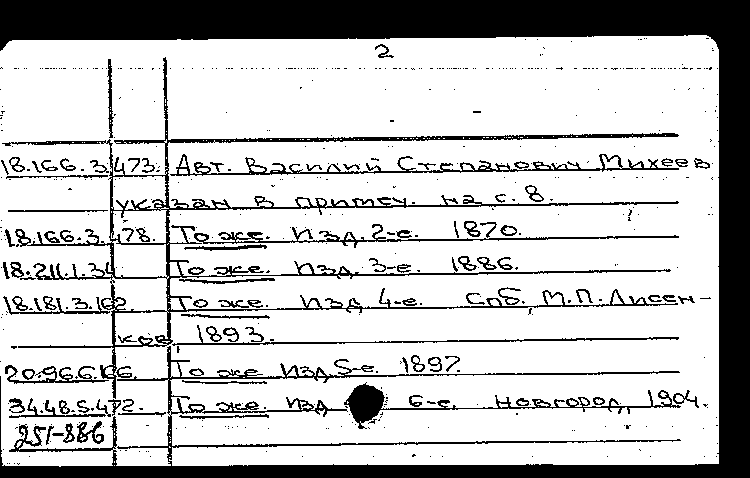 2
18.166.3.473. Авт. Василий Степанович Михеев
указан в примеч. на с. 8.
18.166.3.478. То же. Изд. 2-е. 1870.
18.211.1.34. То же. Изд. 3-е. 1886.
18.181.3.162. То же. Изд 4-е. Спб., М.П. Лисен-
ков, 1893.
20.96.6.166. То же Изд. 5-е. 1897.
34.48.5.472. То же. Изд 6-е. Новгород, 1904.
251-886